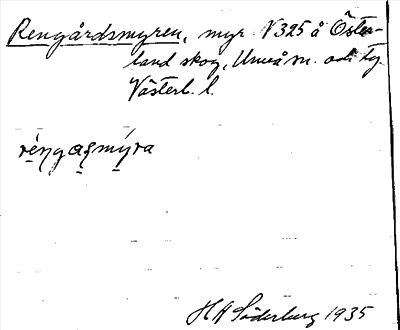 Rengårdsmyren, myr N 325 å Öster-
land skog, Umeå sn. och tg.
Västerb. l.
réngaşmýra
H H Söderberg 1935